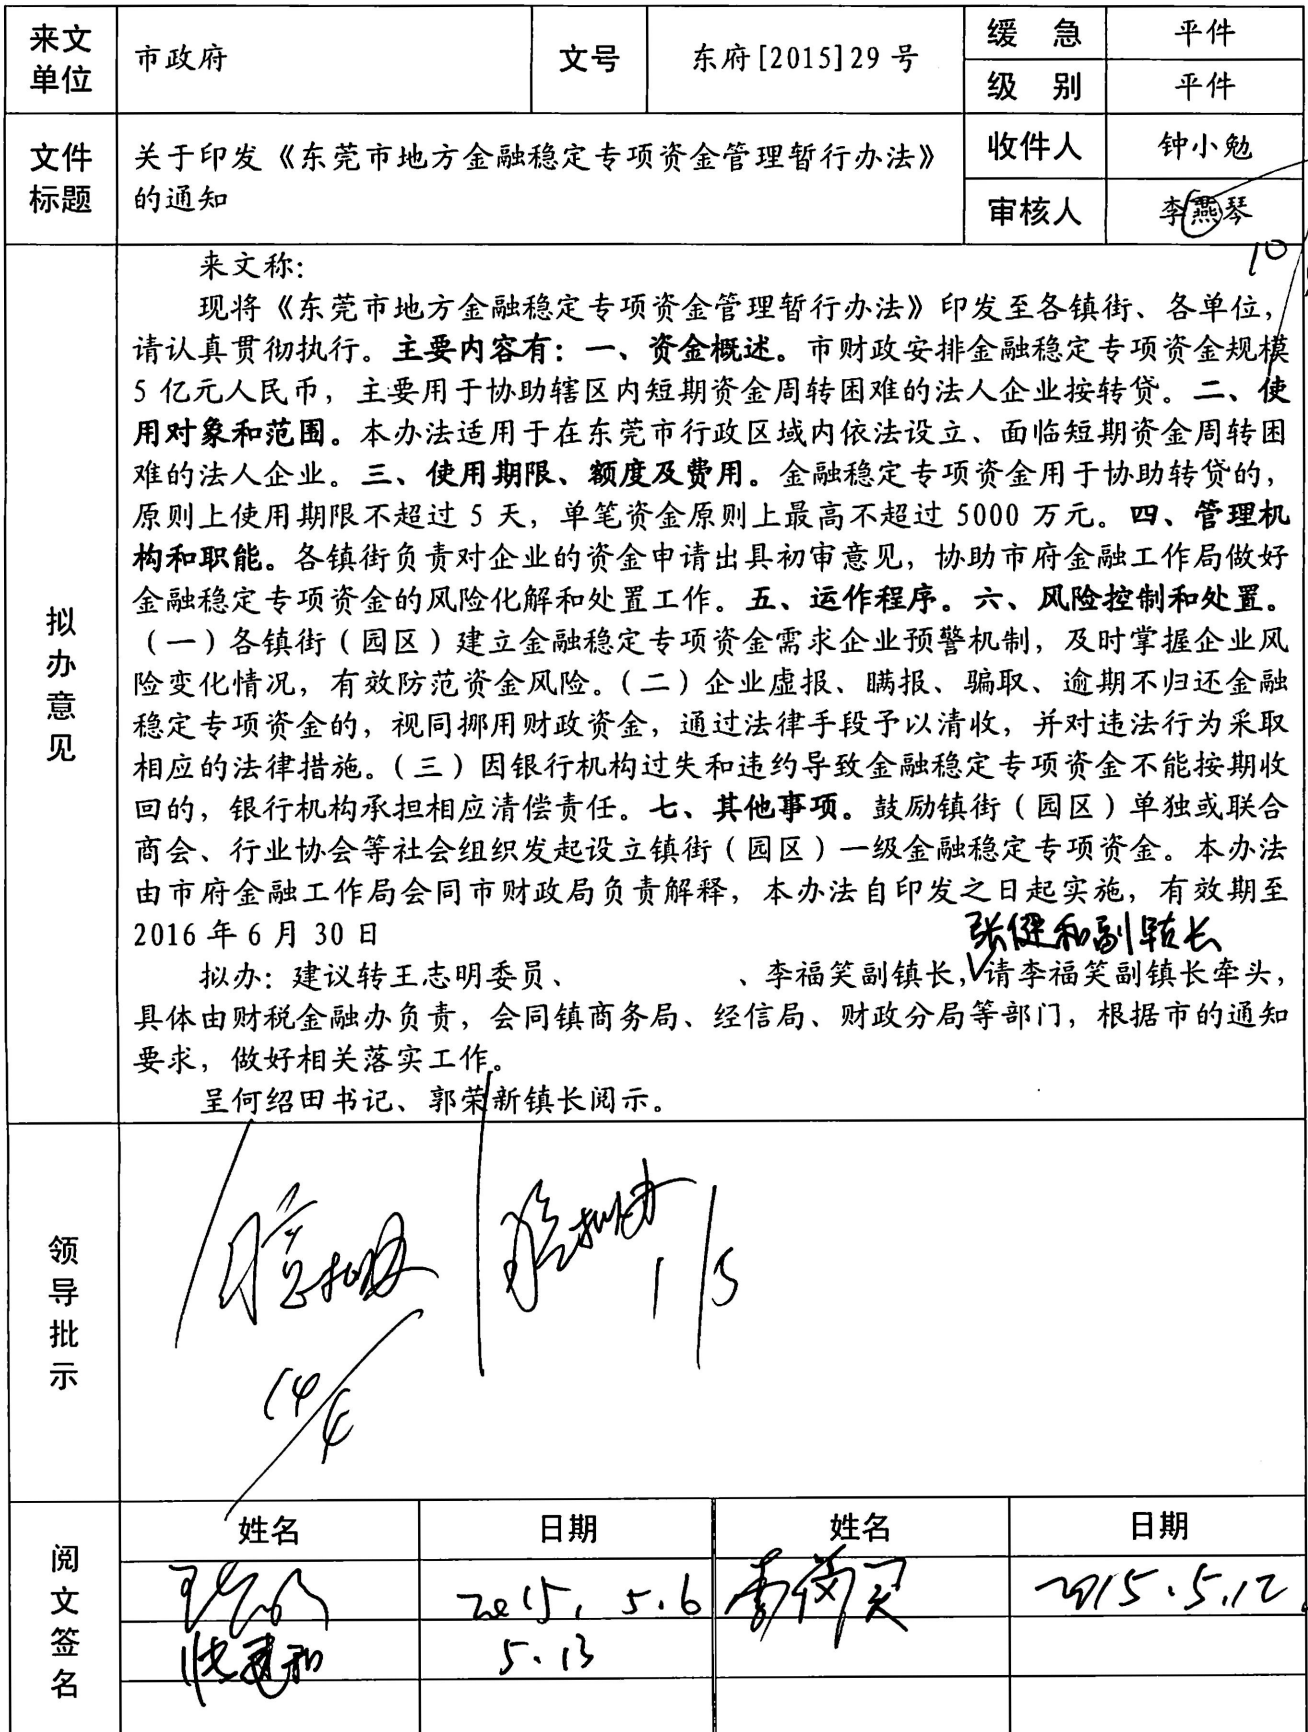 来文单位
市政府
文号
东府[2015]29号
缓急
平件
级别
平件
文件标题
关于印发《东莞市地方金融稳定专项资金管理暂行办法》
的通知
收件人
钟小勉
审核人
李燕琴
10
拟办意见
来文称:
现将《东莞市地方金融稳定专项资金管理暂行办法》印发至各镇街、各单位,
请认真贯彻执行。主要内容有:一、资金概述。市财政安排金融稳定专项资金规模
5亿元人民币,主要用于协助辖区内短期资金周转困难的法人企业按转贷。二、使
用对象和范围。本办法适用于在东莞市行政区域内依法设立、面临短期资金周转困
难的法人企业。三、使用期限、额度及费用。金融稳定专项资金用于协助转贷的,
原则上使用期限不超过5天,单笔资金原则上最高不超过5000万元。四、管理机
构和职能。各镇街负责对企业的资金申请出具初审意见,协助市府金融工作局做好
金融稳定专项资金的风险化解和处置工作。五、运作程序。六、风险控制和处置。
(一)各镇街(园区)建立金融稳定专项资金需求企业预警机制,及时掌握企业风
险变化情况,有效防范资金风险。(二)企业虚报、瞒报、骗取、逾期不归还金融
稳定专项资金的,视同挪用财政资金,通过法律手段予以清收,并对违法行为采取
相应的法律措施。(三)因银行机构过失和违约导致金融稳定专项资金不能按期收
回的,银行机构承担相应清偿责任。七、其他事项。鼓励镇街(园区)单独或联合
商会、行业协会等社会组织发起设立镇街(园区)一级金融稳定专项资金。本办法
由市府金融工作局会同市财政局负责解释,本办法自印发之日起实施,有效期至
2016年6月30日
张健和副镇长
拟办:建议转王志明委员、 、李福笑副镇长,请李福笑副镇长牵头,
具体由财税金融办负责,会同镇商务局、经信局、财政分局等部门,根据市的通知
要求,做好相关落实工作。
呈何绍田书记、郭荣新镇长阅示。
领导批示
1/5
阅文签名
姓名
日期
姓名
日期
2015.5.6
李福笑
2015.5.12
5.13